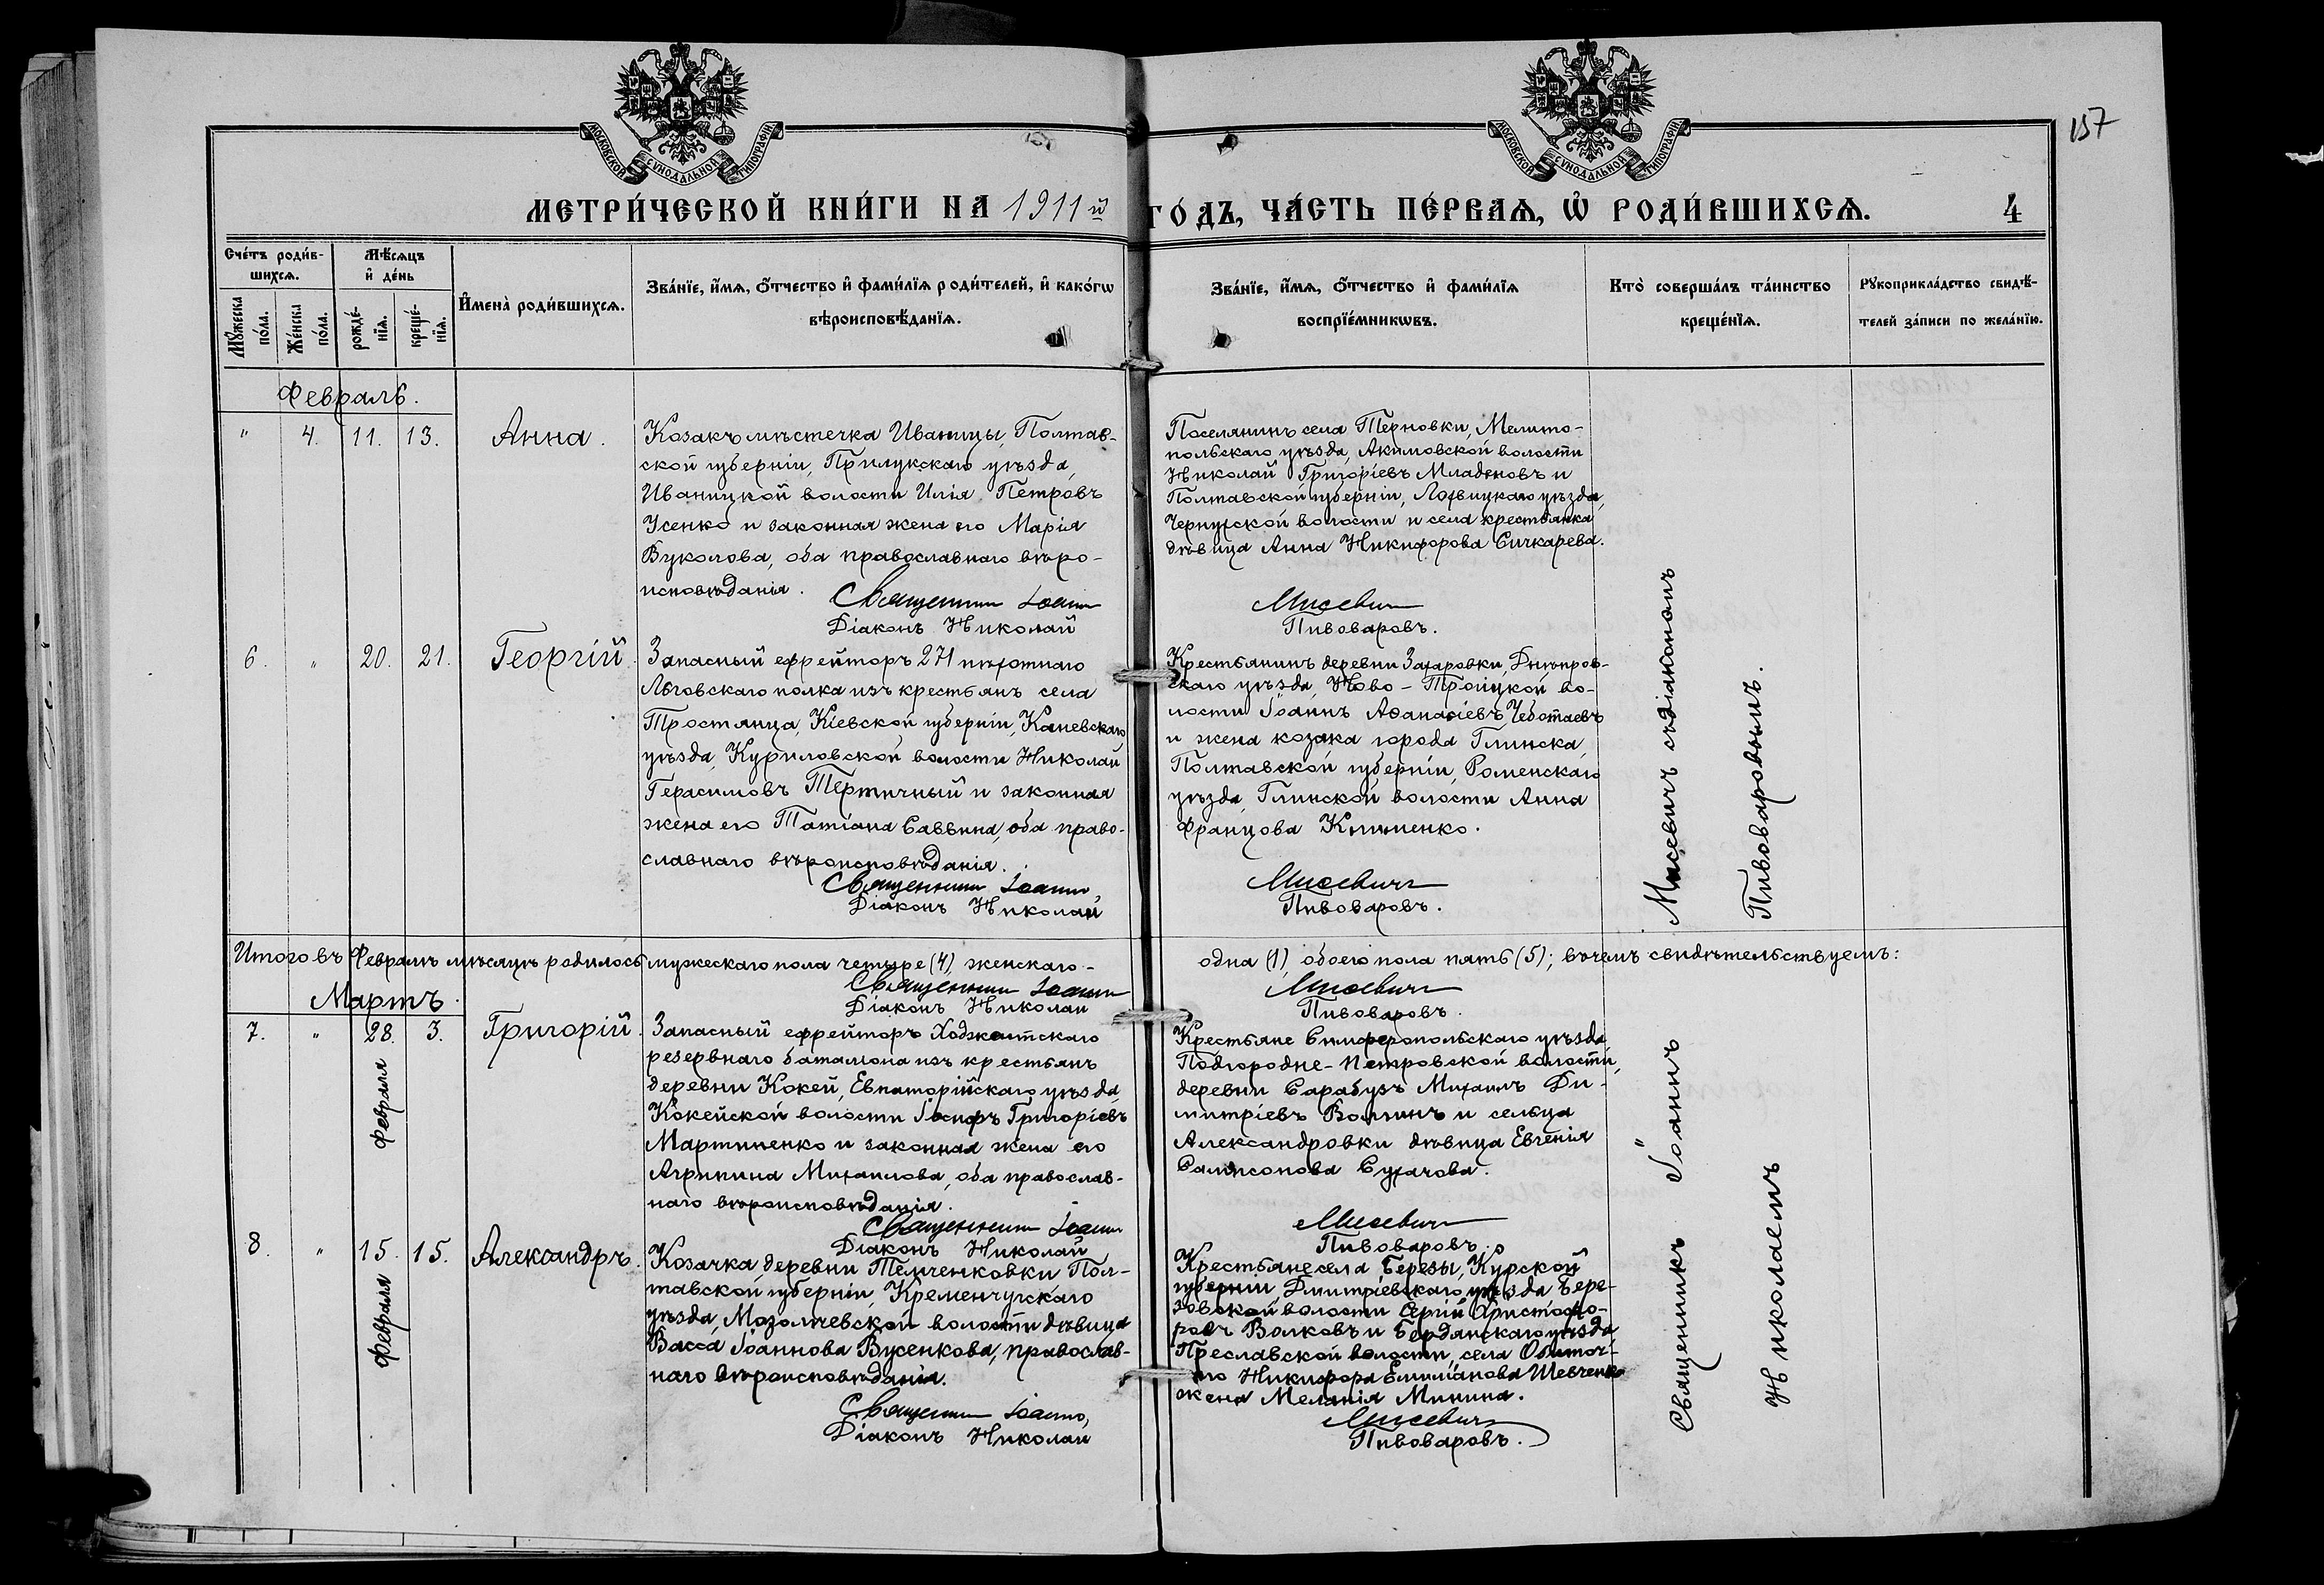 МОСКОВСКОЙ СѴНОДАЛЬНОЙ ТИПОГРАФІИ
МОСКОВСКОЙ СѴНОДАЛЬНОЙ ТИПОГРАФІИ
157
МЕТРИ́ЧЕСКОЙ КНИ́ГИ НА 1911й ГО́ДЪ, ЧА́СТЬ ПЕ́РВАѦ, Ѡ҆ РОДИ́ВШИХСѦ.
4
Сче́тъ роди́в-
шихсѧ.
Мѣ́сѧцъ
и҆ де́нь
Мꙋ́жеска по́ла.
Же́нска по́ла.
рожде́-
нїѧ.
креще́-
нїѧ.
И҆мена̀ роди́вшихсѧ.
Зва́нїе, и҆́мѧ, ѻ҆́тчество и҆ фами́лїѧ роди́телей, и҆ како́гѡ
вѣроисповѣ́данїѧ.
Зва́нїе, и҆́мѧ, ѻ҆́тчество и҆ фами́лїѧ
воспрїе́мникѡвъ.
Кто̀ соверша́лъ та́инство
креще́нїѧ.
Рꙋкоприкла́дство свидѣ́-
телей за́писи по жела́нїю.
Февраль.
" 4. 11. 13. Анна.
Козакъ мѣстечка Иваницы, Полтав-
ской губерніи, Прилукскаго уѣзда,
Иваницкой волости Илія Петровъ
Усенко и законная жена его Марія
Вуколова, оба православнаго вѣро-
исповѣданія.
Священникъ Іоаннъ
Діаконъ Николай
Поселянинъ села Терновки, Мелито-
польскаго уѣзда, Акимовской волости
Николай Григоріевъ Младеновъ и
Полтавской губерніи, Лохвицкаго уѣзда,
Чернухской волости и села крестьянка
дѣвица Анна Никифорова Сичкарева.
Мисевичъ
Пивоваровъ.
6. " 20. 21. Георгій.
Запасный ефрейторъ 271 пѣхотнаго
Льговскаго полка изъ крестьянъ села
Тростянца, Кіевской губерніи, Каневскаго
уѣзда, Куриловской волости Николай
Герасимовъ Тертичный и законная
жена его Татіана Саввина, оба право-
славнаго вѣроисповѣданія.
Священникъ Іоаннъ,
Діаконъ Николай
Крестьянинъ деревни Захаровки, Днѣпров-
скаго уѣзда, Ново-Троицкой во-
лости Іоаннъ Аѳанасіевъ Чеботаевъ
и жена козака города Глинска,
Полтавской губерніи, Роменскаго
уѣзда, Глинской волости Анна
Францова Клименко.
Мисевичъ
Пивоваровъ.
Итого въ Февралѣ мѣсяцѣ родилось мужескаго пола четыре (4), женскаго -
одна (1), обоего пола пять (5); въ чемъ свидѣтельствуемъ:
Священникъ Іоаннъ
Діаконъ Николай
Мисевичъ
Пивоваровъ.
Мартъ.
7. " 28. Февраля 3. Григорій.
Запасный ефрейторъ Ходжентскаго
резервнаго баталіона изъ крестьянъ
деревни Кокей, Евпаторійскаго уѣзда,
Кокейской волости Іосифъ Григоріевъ
Мартиненко и законная жена его
Агрипина Михаилова, оба православ-
наго вѣроисповѣданія.
Священникъ Іоаннъ
Діаконъ Николай
Крестьяне Симферопольскаго уѣзда,
Подгородне-Петровской волости,
деревни Сарабузъ Михаилъ Ди-
митріевъ и сельца
Александровки дѣвица Евгенія
Сампсонова Сухачова.
Мисевичъ
Пивоваровъ.
8. " 15. Февраля 15. Александръ.
Козачка деревни Темченковки Пол-
тавской губерніи, Кременчугскаго
уѣзда, Мозолѣевской волости дѣвица
Васса Іоаннова Вусенкова, православ-
наго вѣроисповѣданія.
Священникъ Іоаннъ,
Діаконъ Николай
Крестьяне села Березы, Курской
губерніи, Димитріевскаго уѣзда Бере-
зовской волости Сергій Христофо-
ровъ Волковъ и Бердянскаго уѣзда
Преславской волости, села Обиточ-
наго Никифора Емиліанова Шевченко
жена Меланія Минина.
Мисевичъ
Пивоваровъ.
Священникъ Іоаннъ Мисевичъ съ діакономъ
Николаемъ Пивоваровымъ.